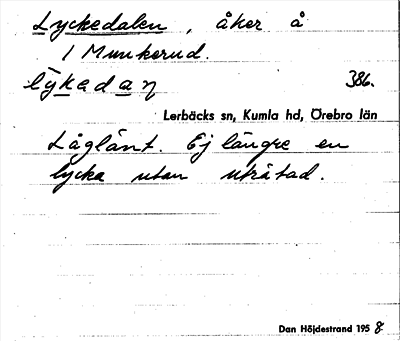 Lyckedalen, åker å
1 Munkerud.
lỳkadaɳ 386.
Lerbäcks sn, Kumla hd, Örebro län
Låglänt. Ej längre en
lycka utan uträtad.
Dan Höjdestrand 1958